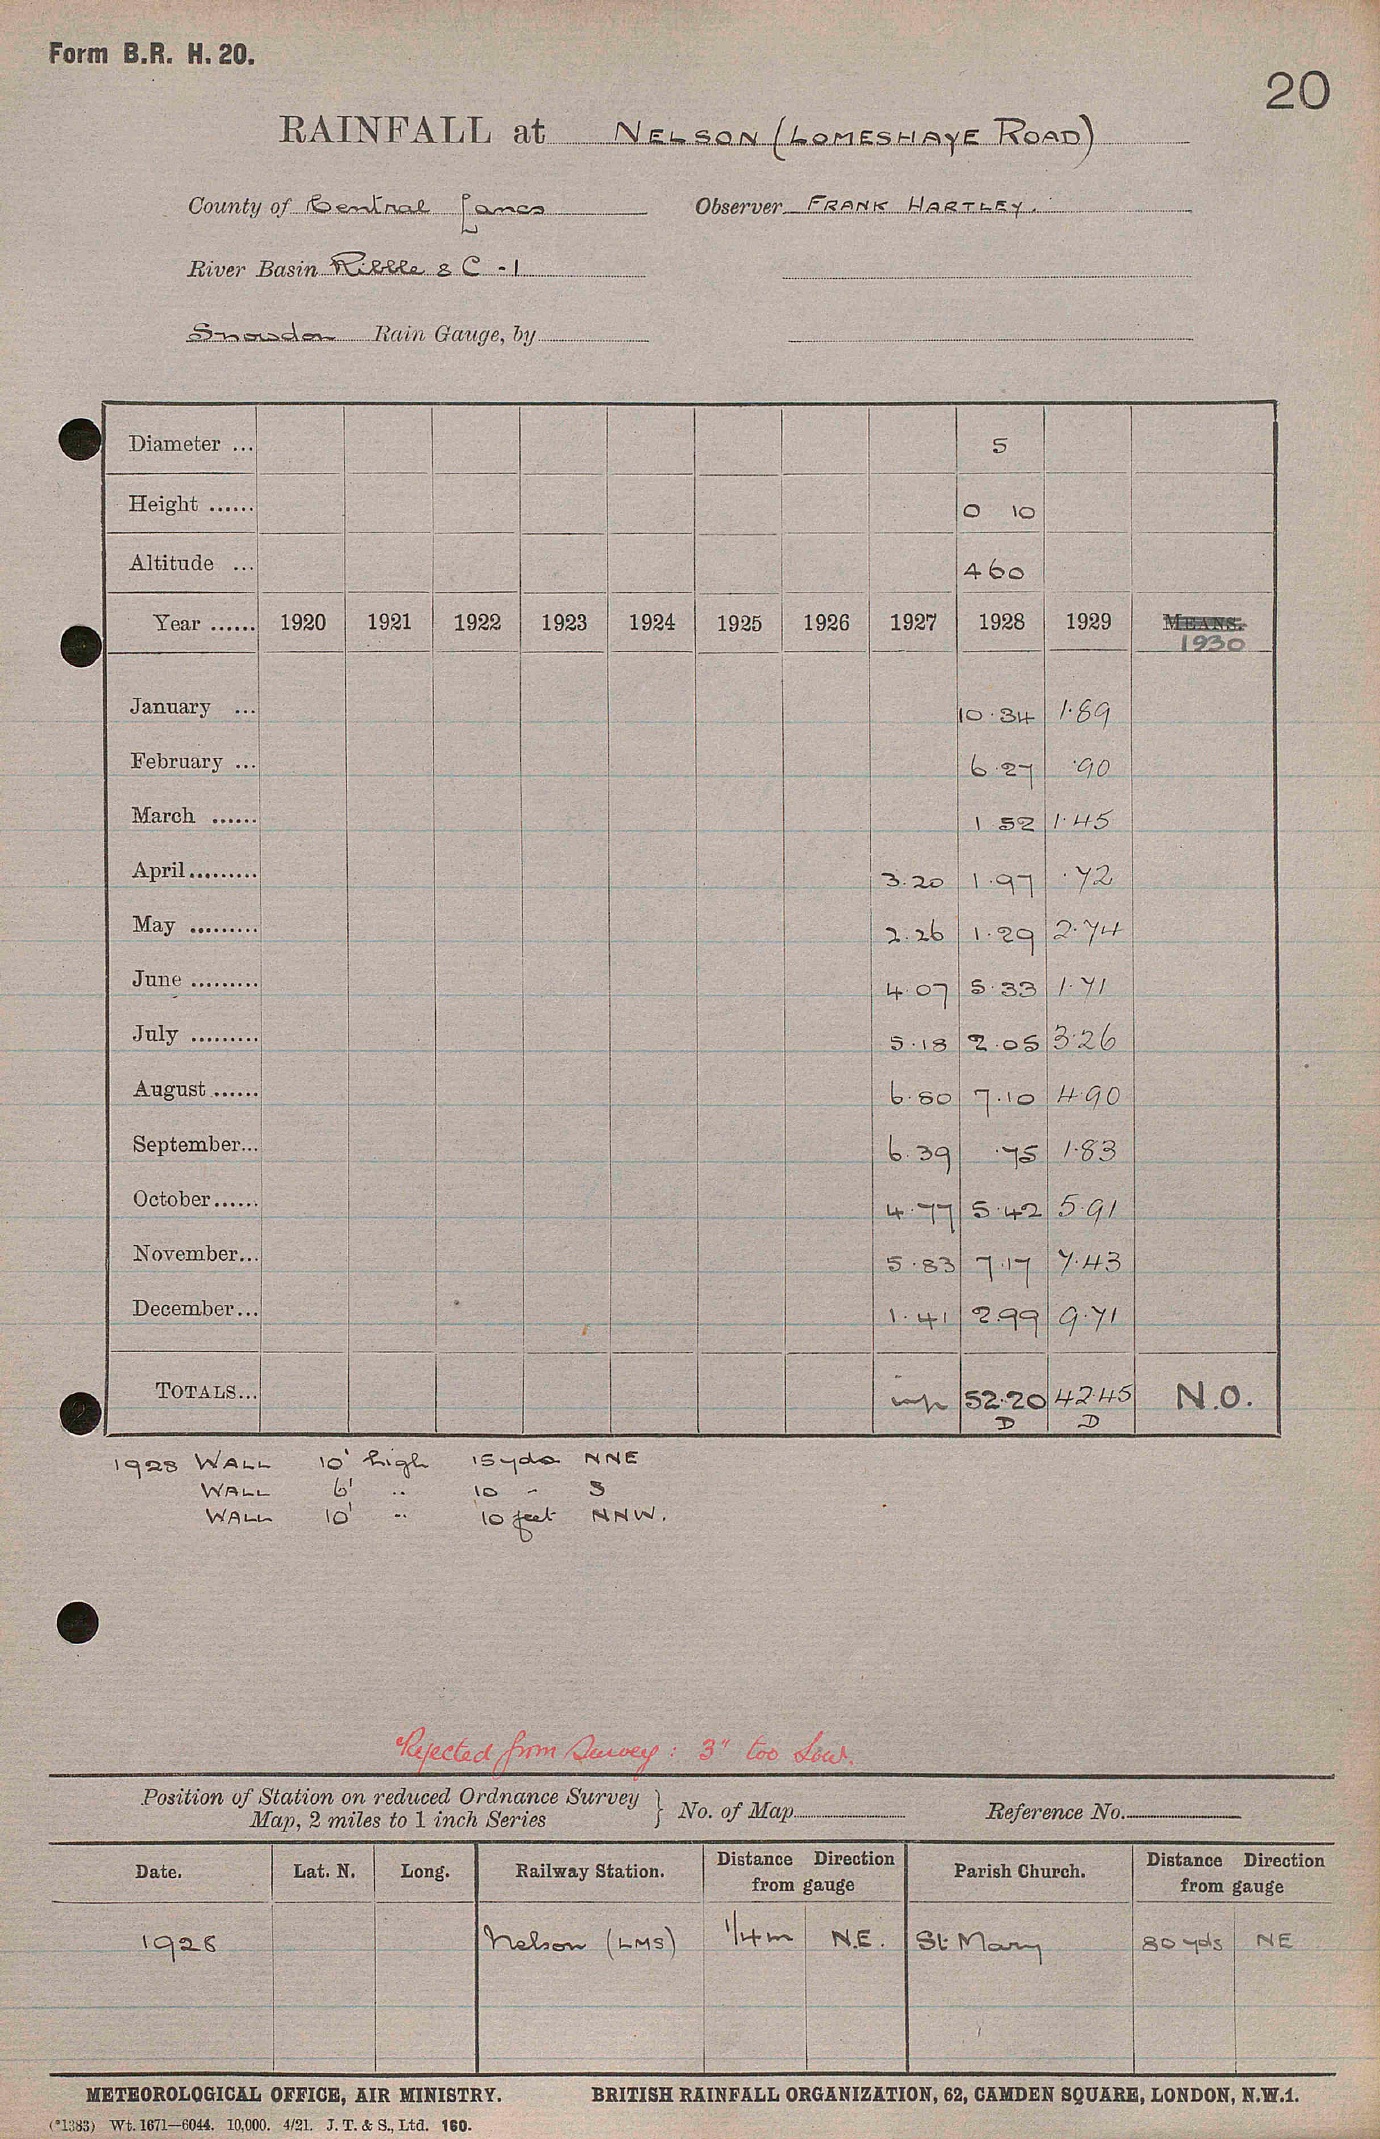 Form B.R. H. 20.
20
RAINFALL at NELSON (LOMESHAYE ROAD)
County of Central Lancs Observer FRANK HARTLEY.
River Basin Ribble & C - 1
Snowdon Rain Gauge, by
Diameter ... 5
Height ...... 0 10
Altitude ... 460
Year ...... 1920 1921 1922 1923 1924 1925 1926 1927 1928 1929 MEANS.
1930
January ... 10.34 1.89
February ... 6.27 .90
March ...... 1 52 1.45
April ......... 3.20 1.97 .72
May ......... 2.26 1.29 2.74
June ......... 4.07 5.33 1.71
July ......... 5.18 2.05 3.26
August ...... 6.80 7.10 4.90
September... 6.39 .75 1.83
October...... 4.77 5.42 5.91
November... 5.83 7.17 7.43
December... 1.41 2.99 9.71
TOTALS... imp 52.20 42.45 N.O.
D D
1928 WALL 10' high 15 yds NNE
WALL 6' .. 10 " S
WALL 10' .. 10 feet NNW.
Rejected from Survey: 3" too Low.
Position of Station on reduced Ordnance Survey
Map, 2 miles to 1 inch Series } No. of Map Reference No.
Date. Lat. N. Long. Railway Station. Distance Direction from gauge Parish Church. Distance Direction from gauge
1928 Nelson (LMS) 1/4 m N.E. St Mary 80 yds NE
METEOROLOGICAL OFFICE, AIR MINISTRY. BRITISH RAINFALL ORGANIZATION, 62, CAMDEN SQUARE, LONDON, N.W.1.
(*1383) Wt. 1671—6044. 10,000. 4/21. J. T. & S., Ltd. 160.